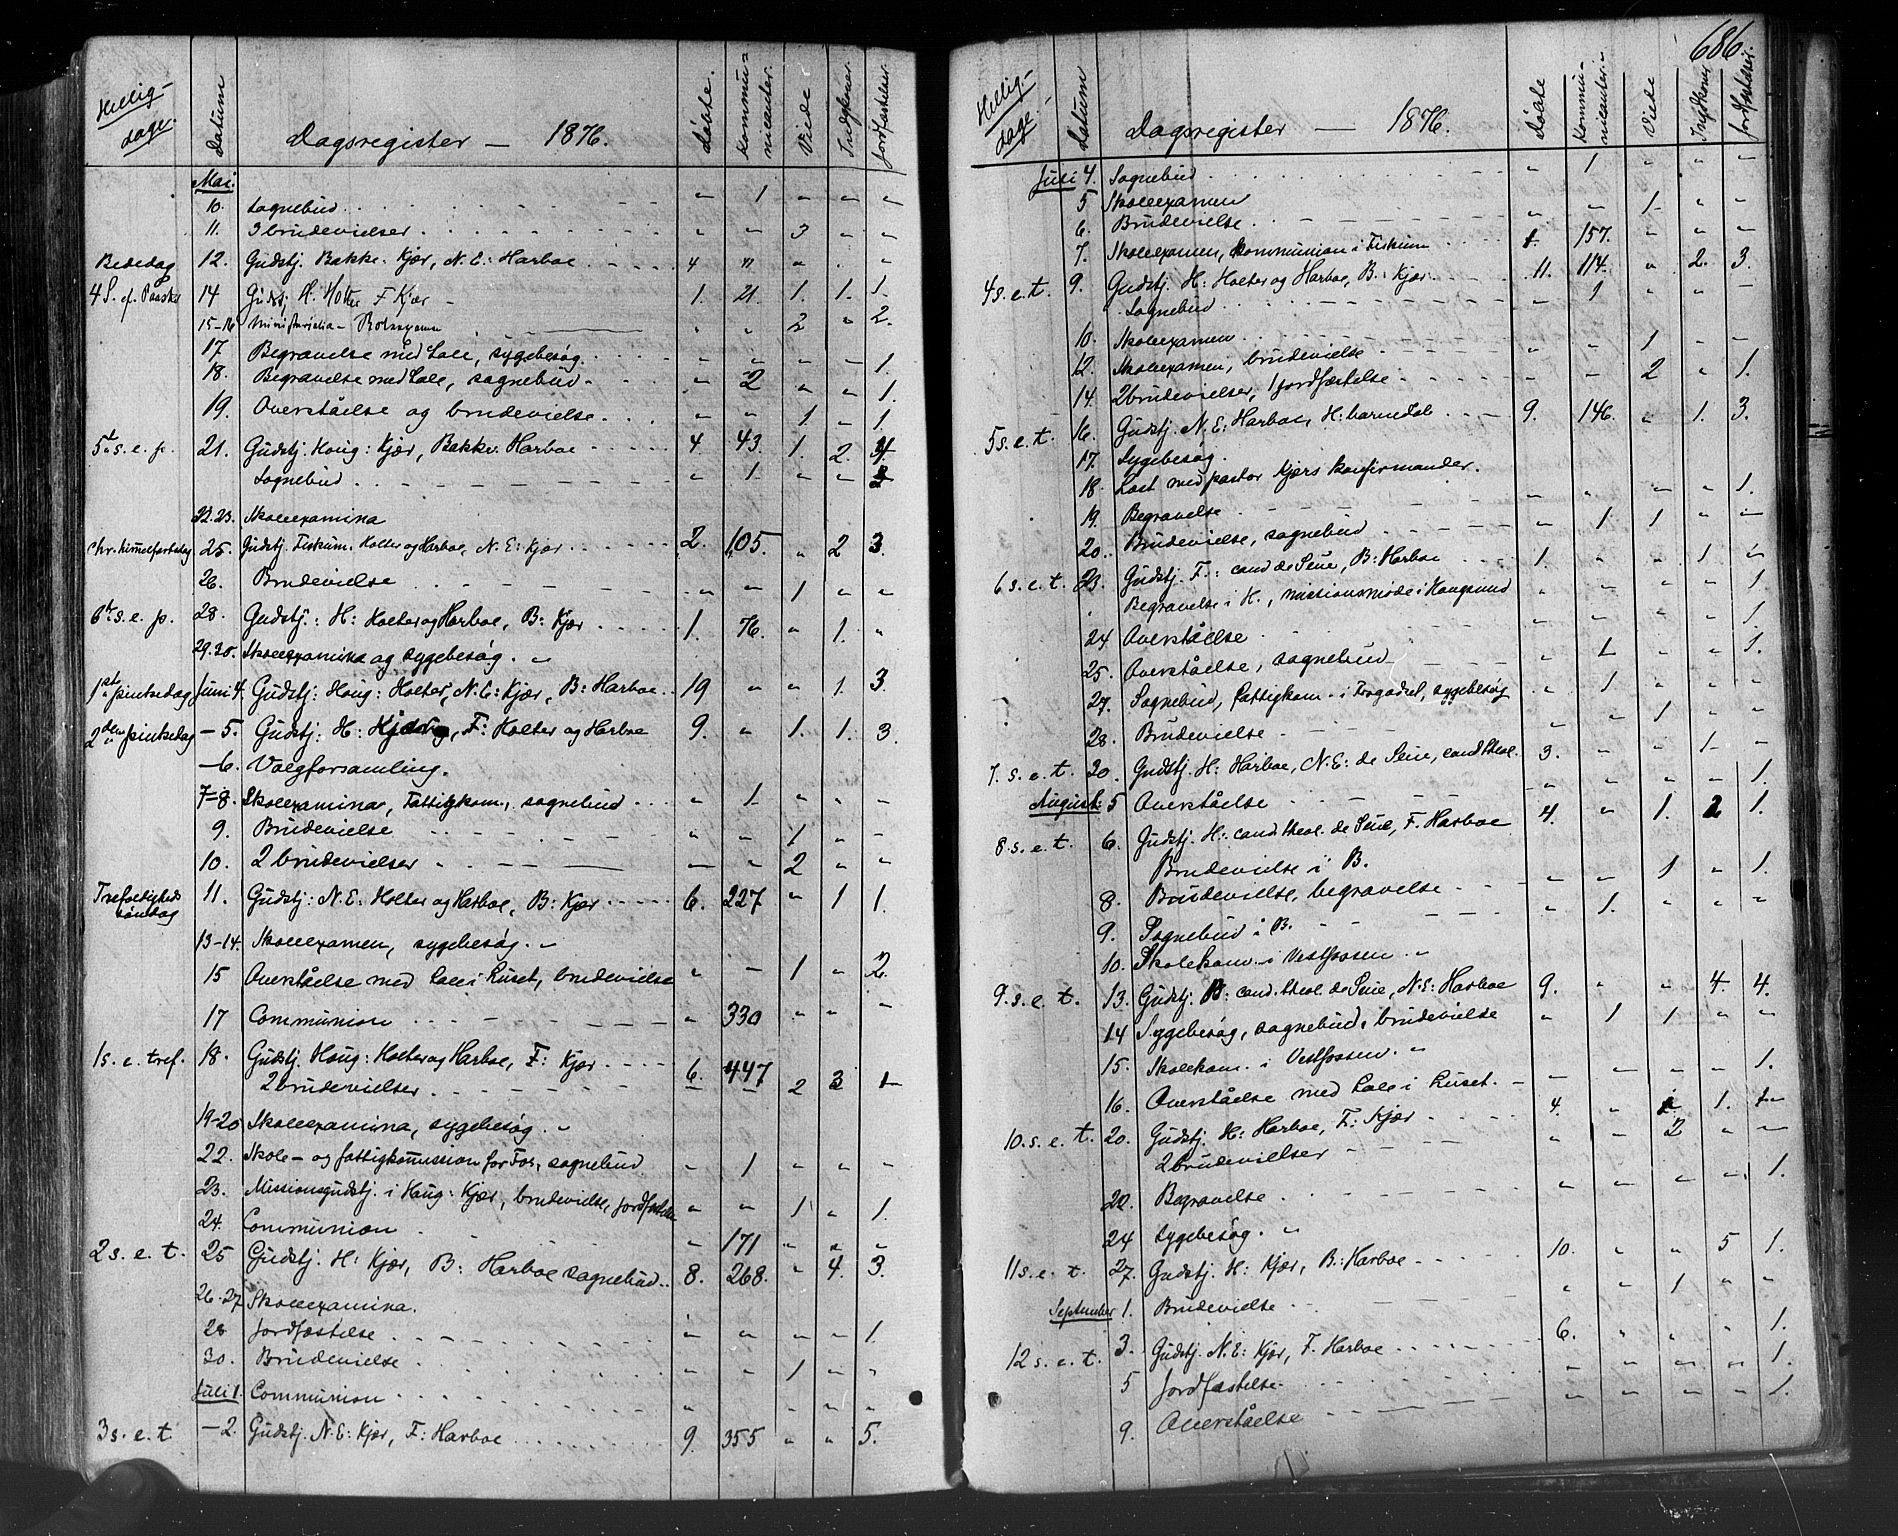 Hellig-
dage.
Datum
Dagsregister — 1876.
Døbte.
Kommu-
nicanter.
Viede
Indgkoner.
Jordfæstelser.
Mai.
10. Sognebud. " 1 " " "
11. 3 brudevielser " " 3 " "
Bededag 12. Gudstj. Bakke: Kjær, N. E.: Harboe 4 " " " "
4 S. ef. Paaske 14 Gudstj. H. Holter F Kjær 1. 21. 1. 1. 1.
15-16 Ministerialia - " " 2 " 2.
17 Begravelse med Tale, sygebesøg. " " " " 1.
18. Begravelse med Tale, sognebud " 2 " " 1.
19. Overståelse og brudevielse. " " 1 " 1.
5t s. e. p. 21. Gudstj. Houg: Kjær, Bakke: Harboe 4 43. 1. 2.
Sognebud " 1. " "
22.23. Skoleexamina
Chr. himmelfartsdag 25. Gudstj. Fiskum: Holter og Harboe, N. E: Kjær 2. 105. " 2 3.
26. Brudevielse " " 1 " "
6t s. e. p. 28. Gudstj.: H: Holter og Harboe, B: Kjær 1. 76. " 1. "
29.30. Skoleexamina og sygebesøg. "
1st pinsedag Juni 4. Gudstj: Houg: Holter, N. E: Kjær, B: Harboe 19 " " 1. 3.
2den pinsedag - 5. Gudstj: H: Kjær, F: Holter og Harboe 9. " 1. 1. 3.
- 6. Valgforsamling.
7-8. Skoleexamina, Fattigkom., sognebud " 1. " " "
9. Brudevielse " " 1 " "
10. 2 brudevielser " " 2 " "
Trefoldigheds
søndag
11. Gudstj: N. E: Holter og Harboe, B: Kjær 6. 227 " 1 1.
13-14. Skoleexamen, sygebesøg. "
15 Overståelse med Tale i Huset, brudevielse " " 1 " 2.
17 Communion " 330 " " "
1 s. e. tref. 18. Gudstj. Houg: Holter og Harboe, F: Kjær 6. 447
2 brudevielser. " " 2 3 1
19-20 Skoleexamina, sygebesøg. "
22. Skole- og fattigkommission for Fos, sognebud " 1 " " "
23. Missionsgudstj. i Houg: Kjær, brudevielse, jordfæstelse " " 1 " 1.
24. Communion " 171 " " "
2 s. e. t. 25 Gudstj. H: Kjær, B: Harboe sognebud 8. 268. " 4. 3.
26-27 Skoleexamina.
28 Jordfæstelse " " " " 1.
30. Brudevielse " " 1 " "
Juli 1. Communion " " " " "
3 s. e. t - 2. Gudstj. N. E: Kjær, F: Harboe 9. 355 " " 5.
686.
Hellig-
dage.
Datum
Dagsregister — 1876.
Døbte
Kommu-
nicanter.
Viede
Ingdkoner
Jordfæstelser.
Juli 4. Sognebud " 1 " " "
5 Skoleexamen
6. Brudevielse. " " 1. " "
7. Skoleexamen, Kommunion i Fiskum 157. " " "
4 s. e. t. 9. Gudstj. H: Holter og Harboe, B: Kjær 11. 114. " 2. 3.
Sognebud " 1 " " "
10. Skoleexamen
12. Skoleexamen, brudevielse " " 1 " "
14. 2 brudevielser, 1 jordfæstelse " " 2 " 1.
5 s. e. t. 16. Gudstj. N. E: Harboe, H: barnedåb 9. 146. " 1. 3.
17. Sygebesøg.
18. Læst med pastor Kjærs konfirmander.
19. Begravelse " " " " 1.
20. Brudevielse, sognebud " 1 1 " "
6 s. e. t. 23. Gudstj. F: cand de Seue, B: Harboe 1. " " 1 "
" Begravelse i H., missionsmøde i Hougsund " " " " 1.
24 Overståelse " " " " 1.
25. Overståelse, sognebud " 1 " " 1.
27. Sognebud, Fattigkom. i sygebesøg " 1 " " "
28. Brudevielse " " 1 " "
7. s. e. t. 30. Gudstj. H: Harboe, N. E: de Seue, cand theol. 3. " " 1. "
August: 5 Overståelse " " " " 1.
8. s. e. t. 6. Gudstj. H: cand. theol. de Seue, F. Harboe 4. " 1. 2 1.
Brudevielse i B.
8. Brudevielse, begravelse " " 1 " 1.
9. Sognebud i B. " 1. " " "
10. Skolekom. i Vestfossen "
9. s. e. t. 13. Gudstj. B: cand. theol. de Seue, N. E: Harboe 9. " " 4 4.
14 Sygebesøg, sognebud, brudevielse " 1 1 " "
15. Skolekom. i Vestfossen. "
16. Overståelse med Tale i Huset. " " " " 1.
10. s. e. t. 20. Gudstj. H: Harboe, F: Kjær 4. " 1.
2 brudevielser " " 2 " "
22. Begravelse " " " " 1.
24 Sygebesøg. "
11 s. e. t. 27. Gudstj. H: Kjær, B: Harboe 10. " " 5 1.
September 1. Brudevielse " " 1 " "
12 s. e. t. 3. Gudstj. N. E: Kjær, F. Harboe 6. " " " 1.
5 Jordfæstelse " " " " 1.
9. Overståelse " " " " 1.